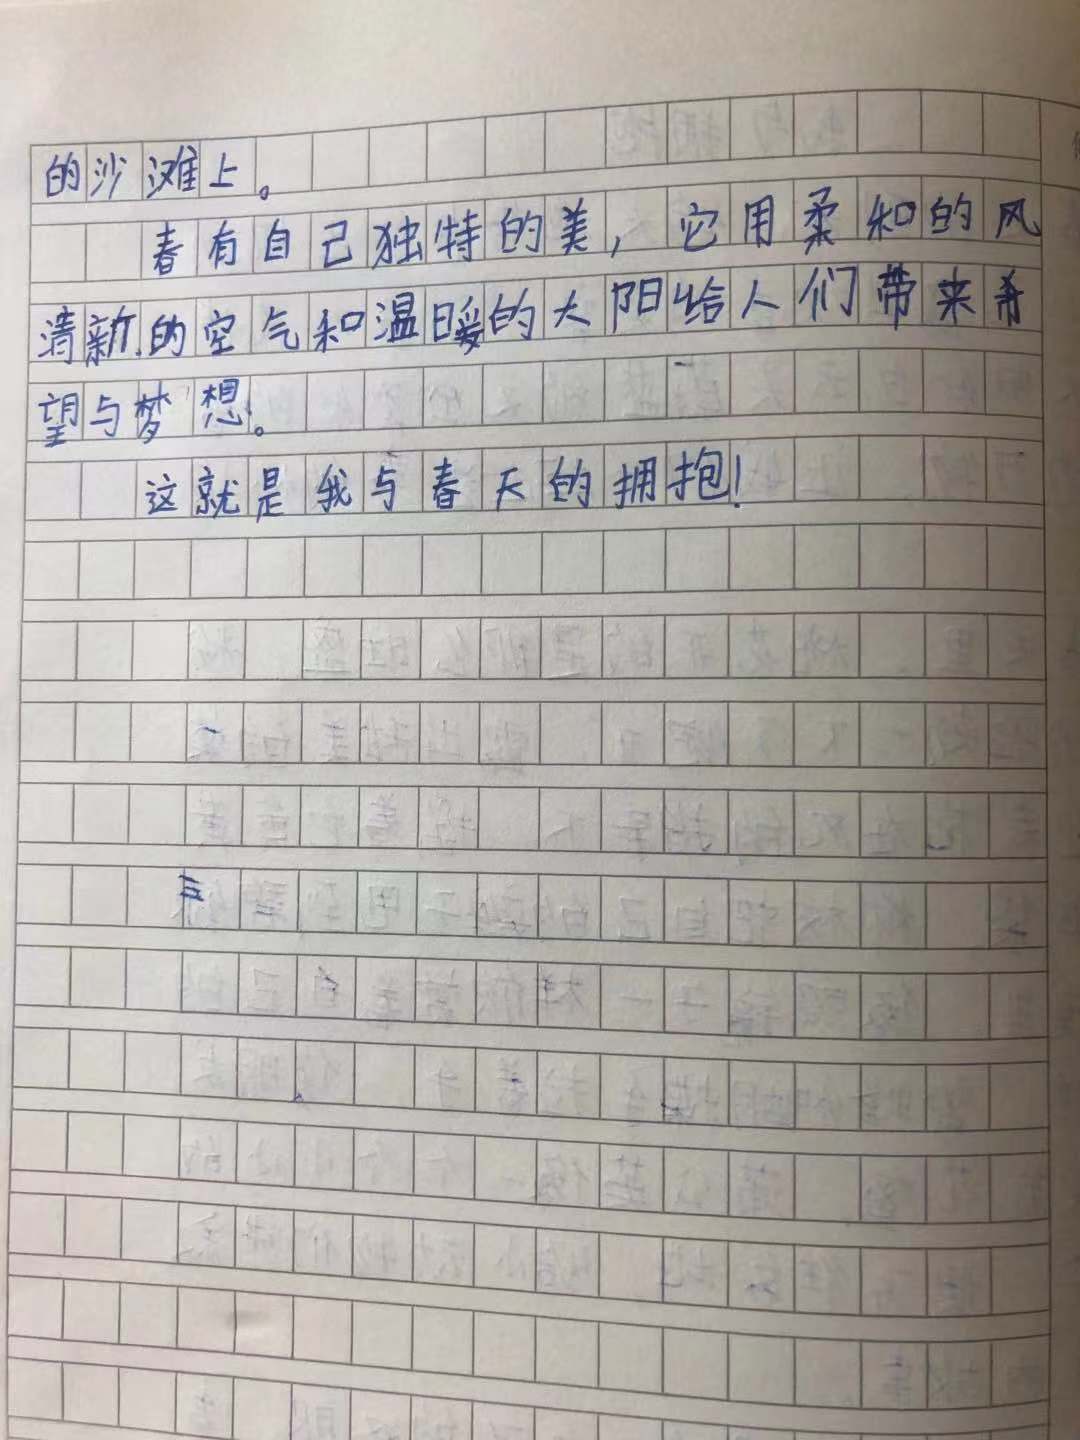 的沙滩上。
春有自己独特的美，它用柔和的风
清新的空气和温暖的太阳给人们带来希
望与梦想。
这就是我与春天的拥抱！